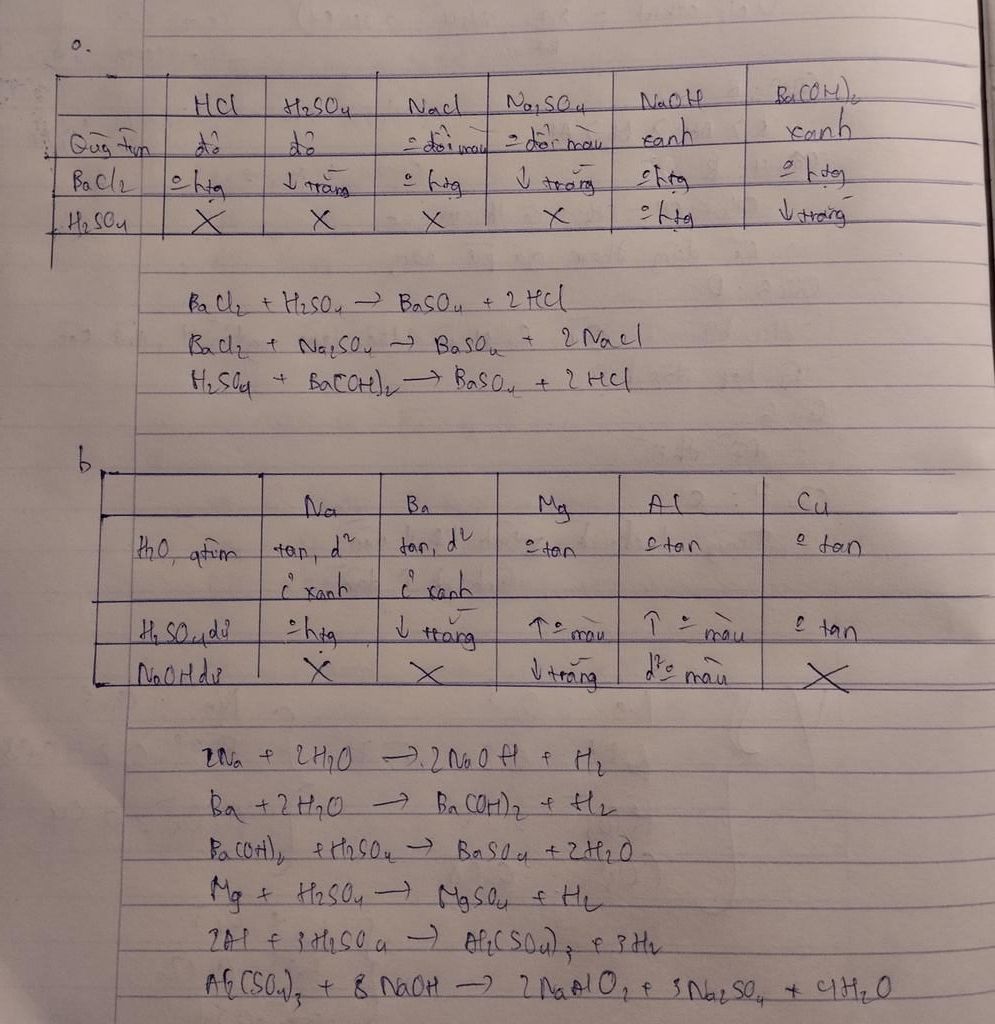 a.
HCl H2SO4 NaCl Na2SO4 NaOH Ba(OH)2
Qùy tím đỏ đỏ o đổi màu o đổi màu xanh xanh
BaCl2 o htg ↓ trắng o htg ↓ trắng o htg o htg
H2SO4 X X X X o htg ↓ trắng
BaCl2 + H2SO4 → BaSO4 + 2HCl
BaCl2 + Na2SO4 → BaSO4 + 2NaCl
H2SO4 + Ba(OH)2 → BaSO4 + 2HCl
b
Na Ba Mg Al Cu
H2O, qtím tan, d² tan, d² o tan o tan o tan
xanh xanh
H2SO4 dư o htg ↓ trắng ↑ o màu ↑ o màu o tan
NaOH dư X X ↓ trắng d² o màu X
2Na + 2H2O → 2NaOH + H2
Ba + 2H2O → Ba(OH)2 + H2
Ba(OH)2 + H2SO4 → BaSO4 + 2H2O
Mg + H2SO4 → MgSO4 + H2
2Al + 3H2SO4 → Al2(SO4)3 + 3H2
Al2(SO4)3 + 8NaOH → 2NaAlO2 + 3Na2SO4 + 4H2O